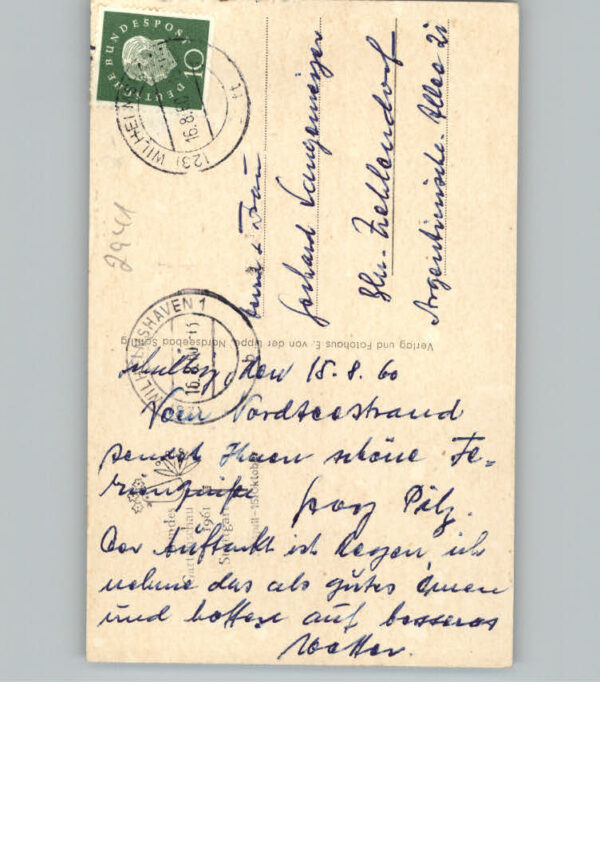 Schillig, den 15.8.60
Vom Nordseestrand
sendet Ihnen schöne Fe-
riengrüße
Pilz.
Der Auftakt ist Regen, ich
nehme das als gutes Omen
und hoffe auf besseres
Wetter.
Herrn u. Frau
Gerhard
Bln-Zehlendorf
Argentinische-Allee 2i
Verlag und Fotohaus E. von der Lippe, Nordseebad Schillig
DEUTSCHE BUNDESPOST
10
(23) WILHELMSHAVEN 1
16.8.60
WILHELMSHAVEN 1
16.8.60
Bundes
Gartenschau
1961
Stuttgart
2941